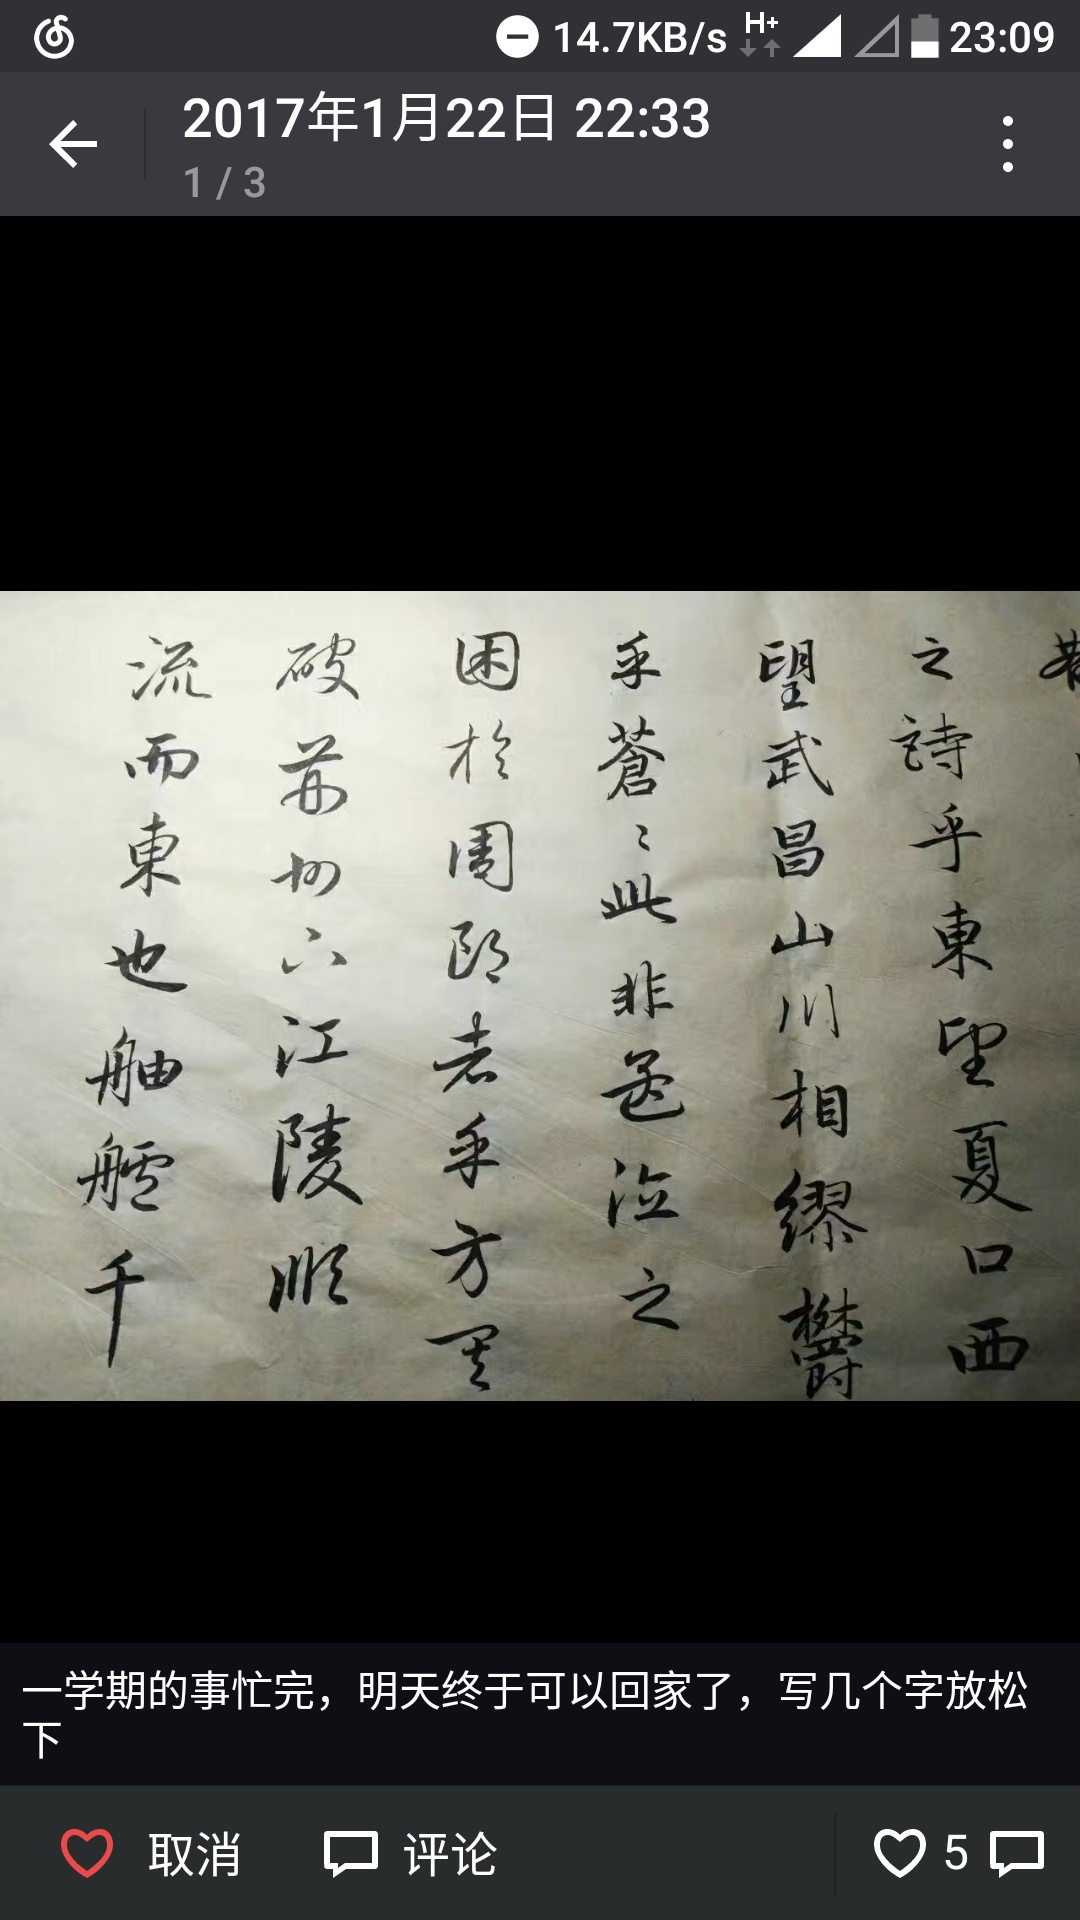 23:09
14.7KB/s
H+
2017年1月22日 22:33
1 / 3
之詩乎東望夏口西
望武昌山川相繆鬱
乎蒼〻此非孟德之
困於周郎者乎方其
破荊州下江陵順
流而東也舳艫千
一学期的事忙完，明天终于可以回家了，写几个字放松
下
取消
评论
5